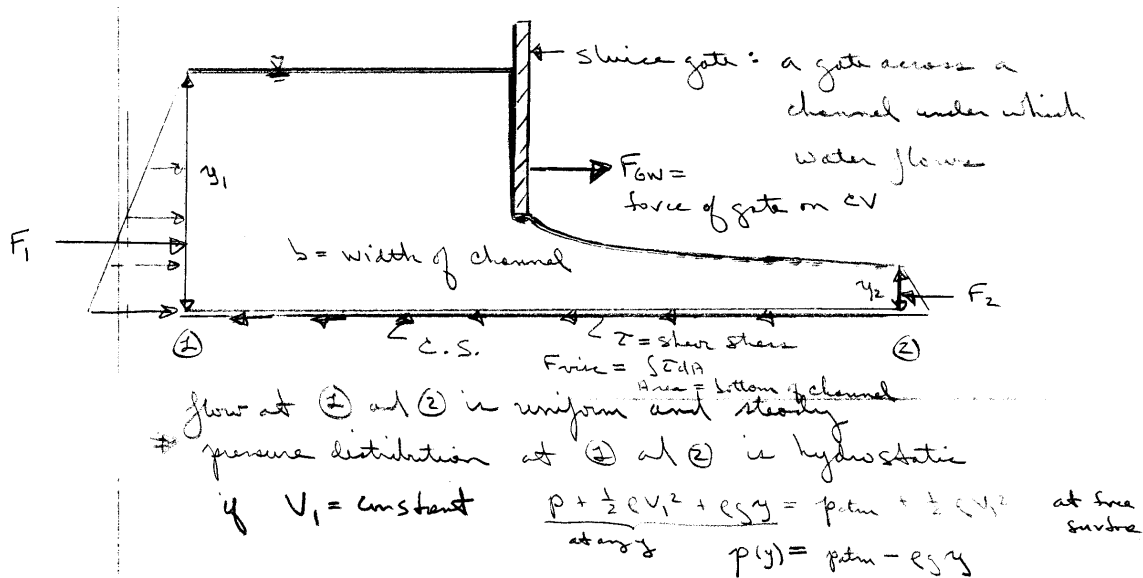 sluice gate : a gate across a
channel under which
water flows
F_GW =
force of gate on CV
y_1
F_1
b = width of channel
y_2
F_2
①
C.S.
τ = shear stress
②
F_visc = ∫τdA
Area = bottom of channel
flow at ① and ② is uniform and steady
pressure distribution at ① and ② is hydrostatic
if V_1 = constant p + ½ρV_1² + ρgy = patm + ½ρV_1² at free
surface
at any y
p(y) = patm - ρgy